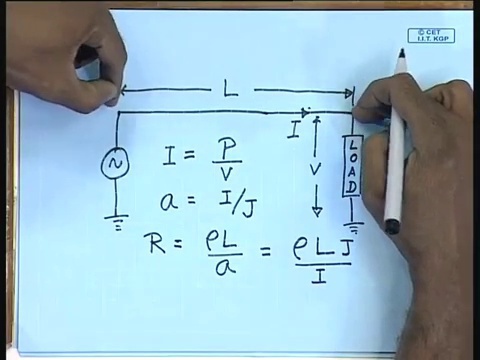 © CET
I.I.T. KGP
L
I
V
LOAD
~
I = P/V
a = I/J
R = ρL/a = ρLJ/I